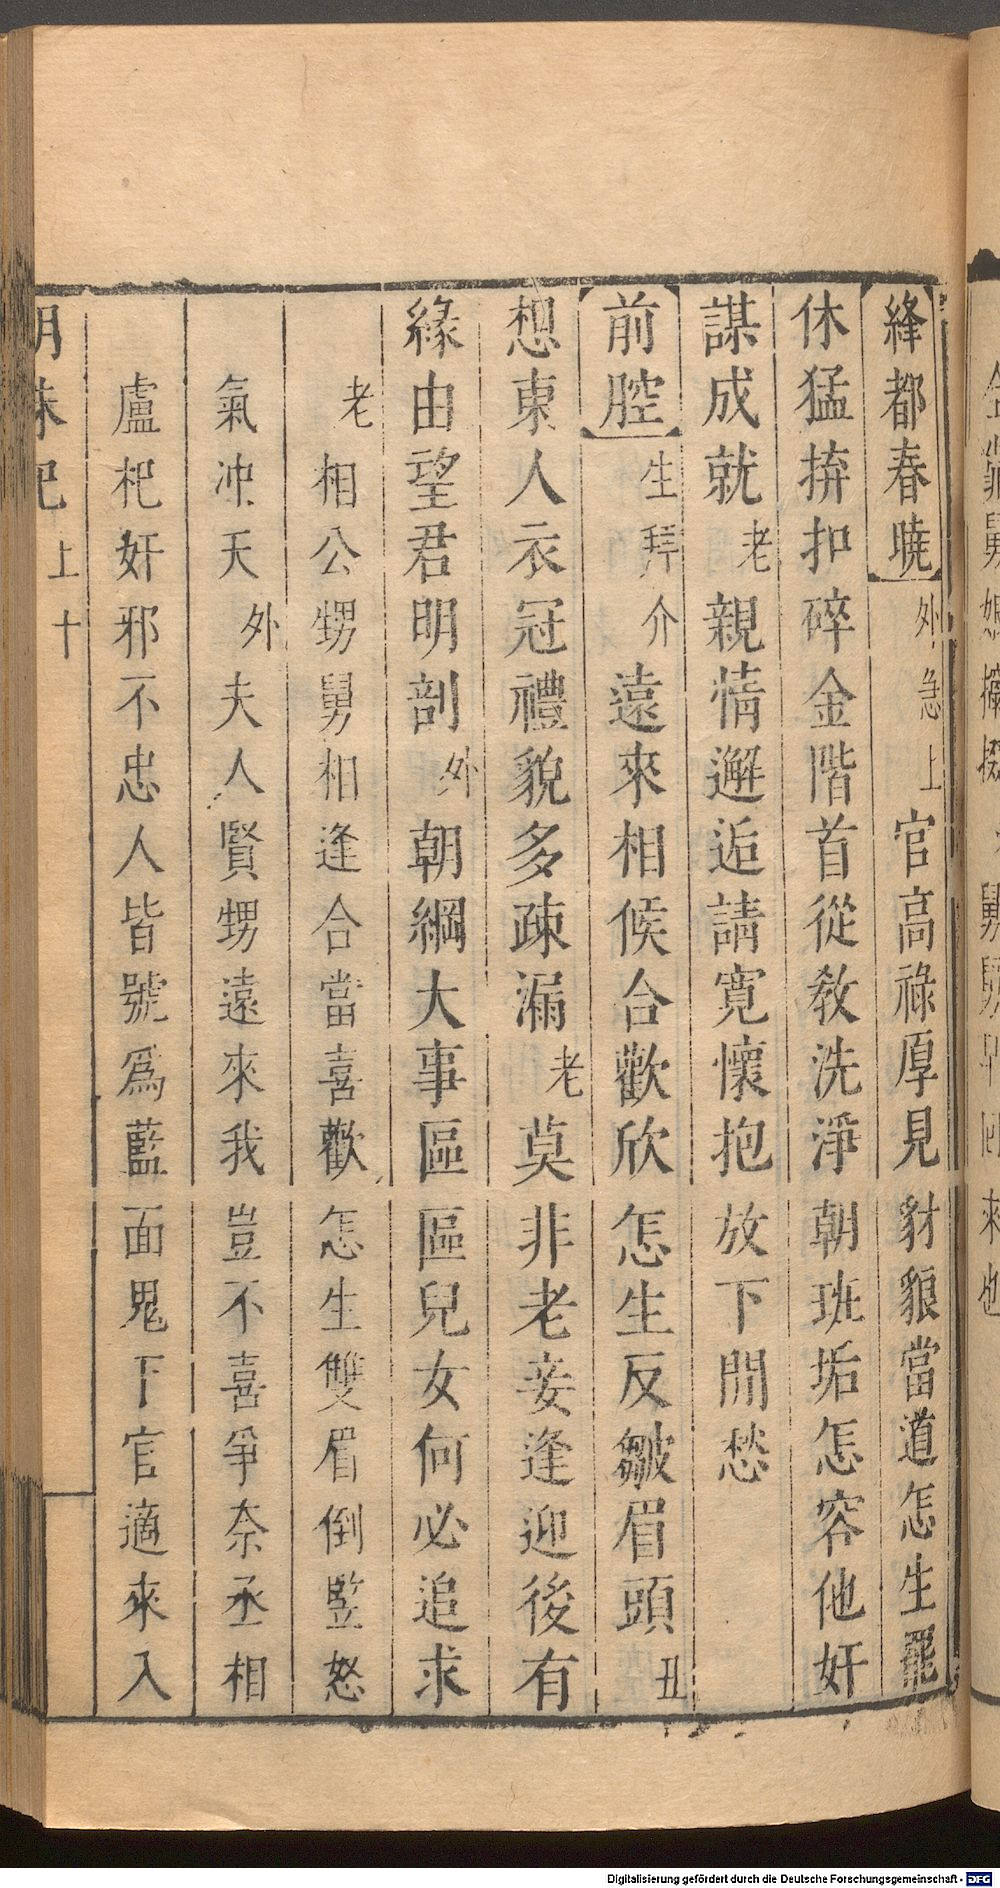 絳都春曉外急上官高祿厚見豺狼當道怎生罷
休猛拚扣碎金階首從教洗淨朝班垢怎容他奸
謀成就老親情邂逅請寬懷抱放下閒愁
前腔生拜介遠來相候合歡欣怎生反皺眉頭丑
想東人衣冠禮貌多疎漏老莫非老妾逢迎後有
緣由望君明剖外朝綱大事區區兒女何必追求
老相公甥舅相逢合當喜歡怎生雙眉倒竪怒
氣冲天外夫人賢甥遠來我豈不喜爭奈丞相
盧杞奸邪不忠人皆號爲藍面鬼下官適來入
明珠記上十
Digitalisierung gefördert durch die Deutsche Forschungsgemeinschaft - DFG